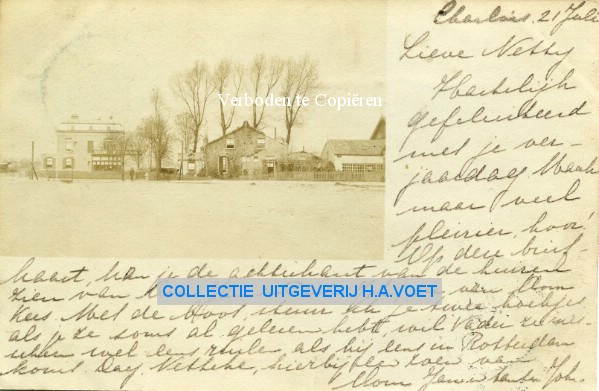 Charlois, 21 Juli
Lieve Netty
Hartelijk
gefeliciteerd
met je ver-
jaardag Maak
maar veel
pleizier, hoor!
Op deze brief-
kaart, kan je de achterkant van de huizen
zien van van Oom
Kees Met de stuur ik je twee boekjes
als je ze soms al gelezen hebt, wil Vader ze mis-
schien wel eens ruilen als hij eens in Rotterdam
komt. Dag Netteke, hierbij een zoen van
Oom Jan en tante Joh.
Verboden te Copiëren
COLLECTIE UITGEVERIJ H.A.VOET